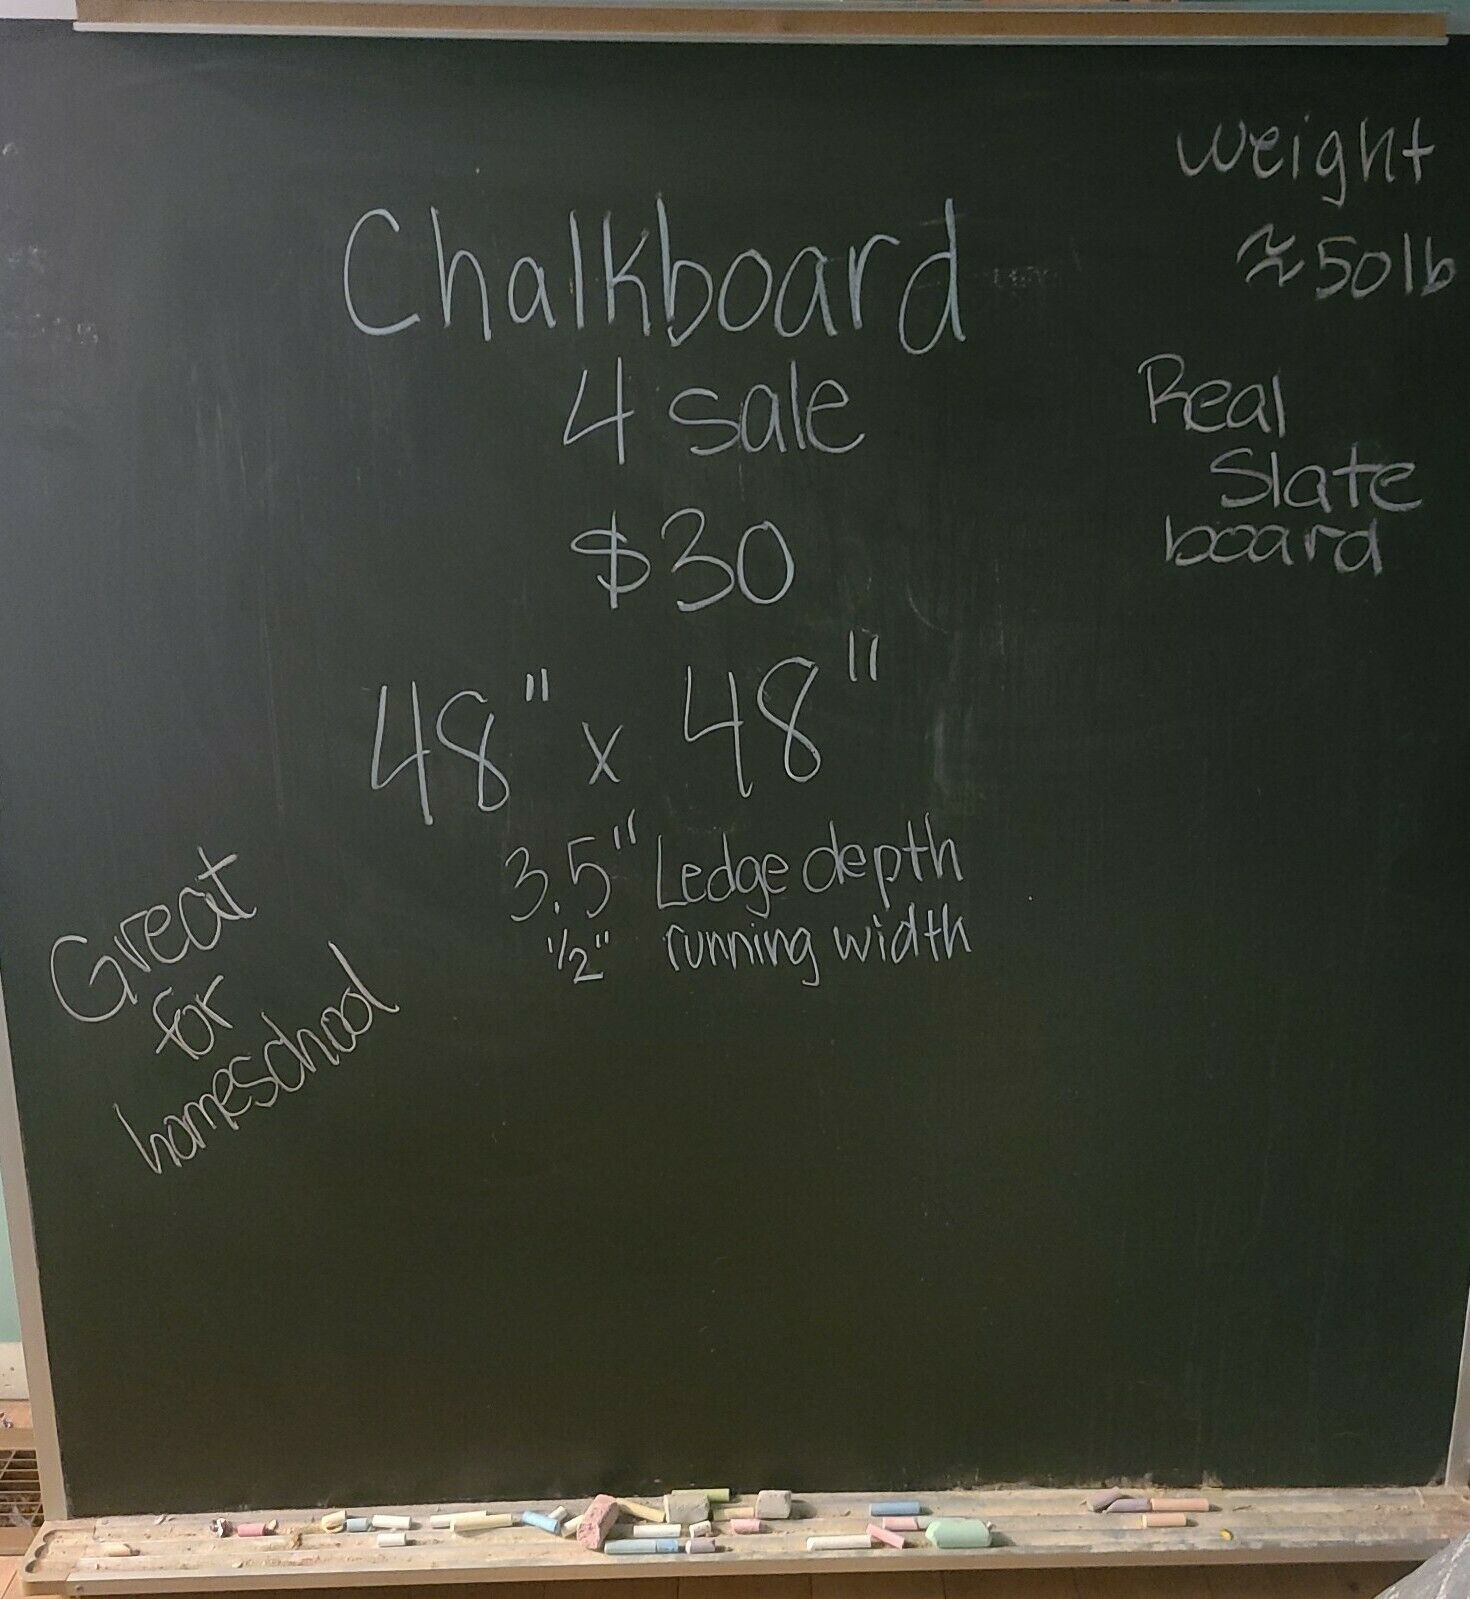 Chalkboard
4 sale
$30
48" x 48"
3.5" Ledge depth
1/2" running width
weight
≈50lb
Real
Slate
board
Great
for
homeschool